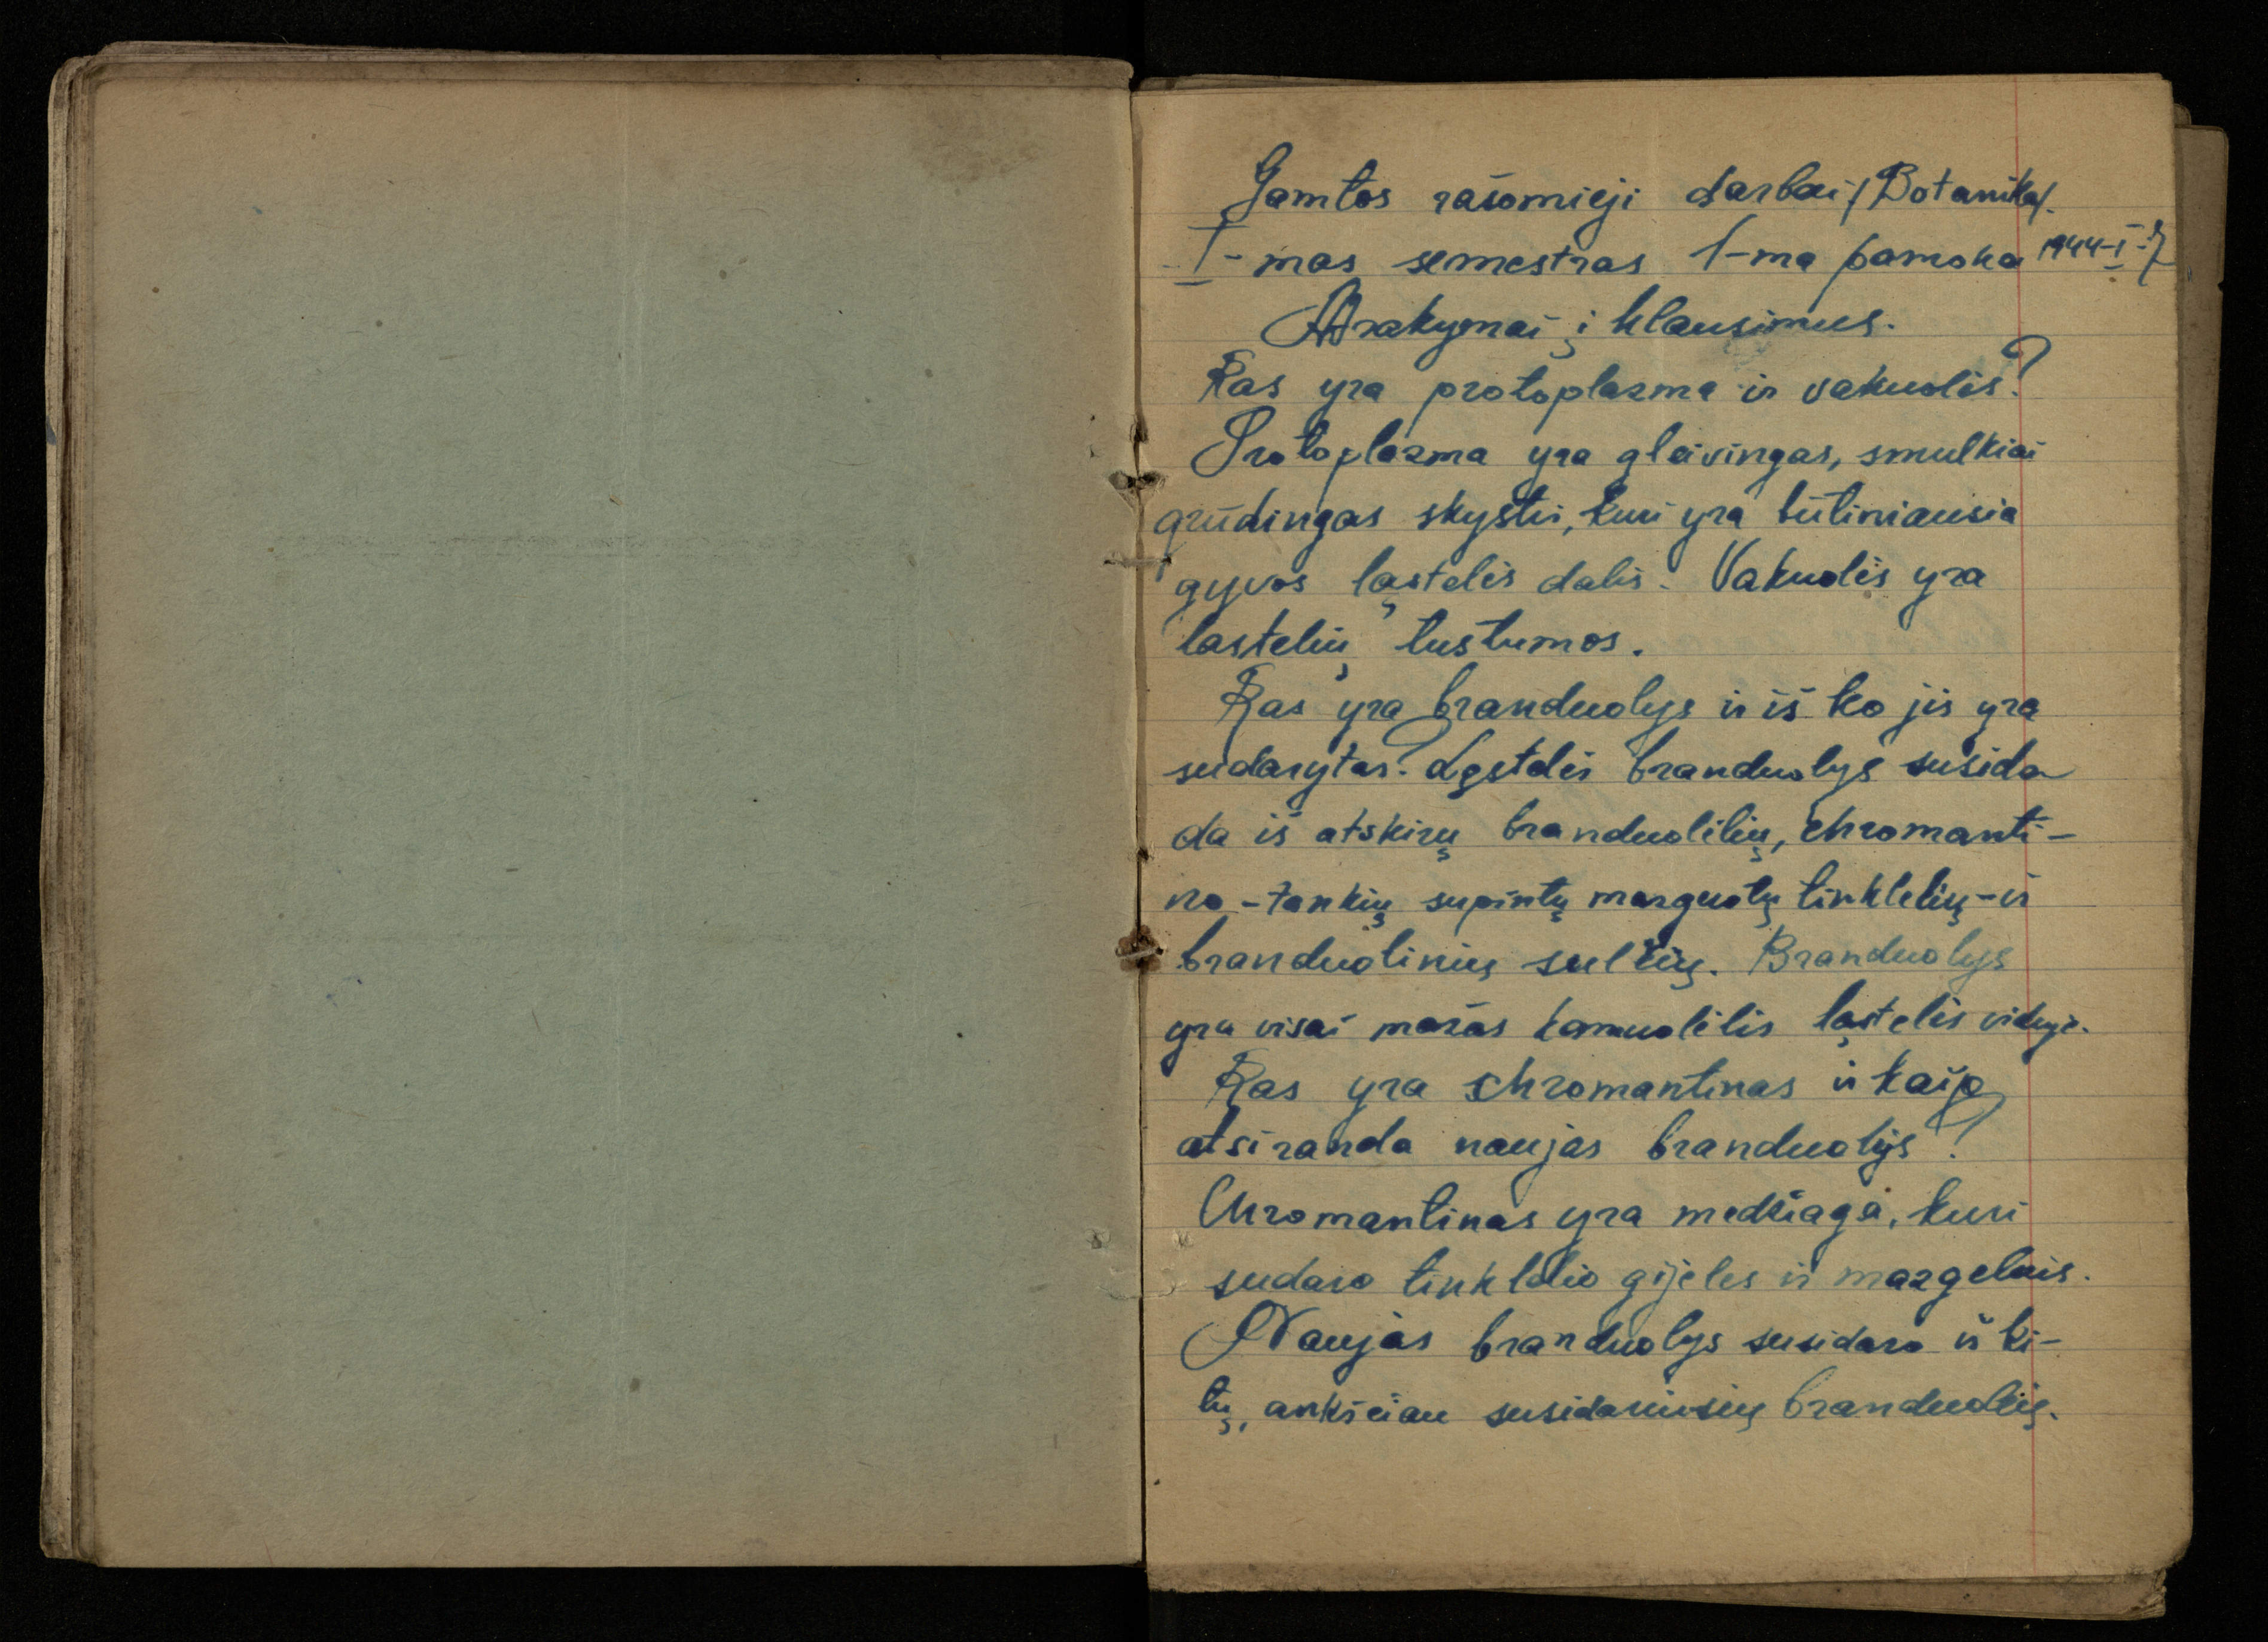 Gamtos rašomieji darbai /Botanika/.
I-mas semestras 1-ma pamoka 1944-I-7
Atsakymai į klausimus.
Kas yra protoplazma ir vakuolės?
Protoplazma yra gleivingas, smulkiai
grūdingas skystis, kuri yra būtiniausia
gyvos ląstelės dalis. Vakuolės yra
lastelių tuštumos.
Kas yra branduolys ir iš ko jis yra
sudarytas? Ląstelės branduolys susida
da iš atskirų branduolėlių, chromanti-
no - tankių supintų mazguotų tinklelių - ir
branduolinių sulčių. Branduolys
yra visai mažas kamuolėlis ląstelės viduje.
Kas yra chromantinas ir kaip
atsiranda naujas branduolys?
Chromantinas yra medžiaga, kuri
sudaro tinklelio gijeles ir mazgelius.
Naujas branduolys susidaro iš ki-
tų, anksčiau susidariusių branduolių.